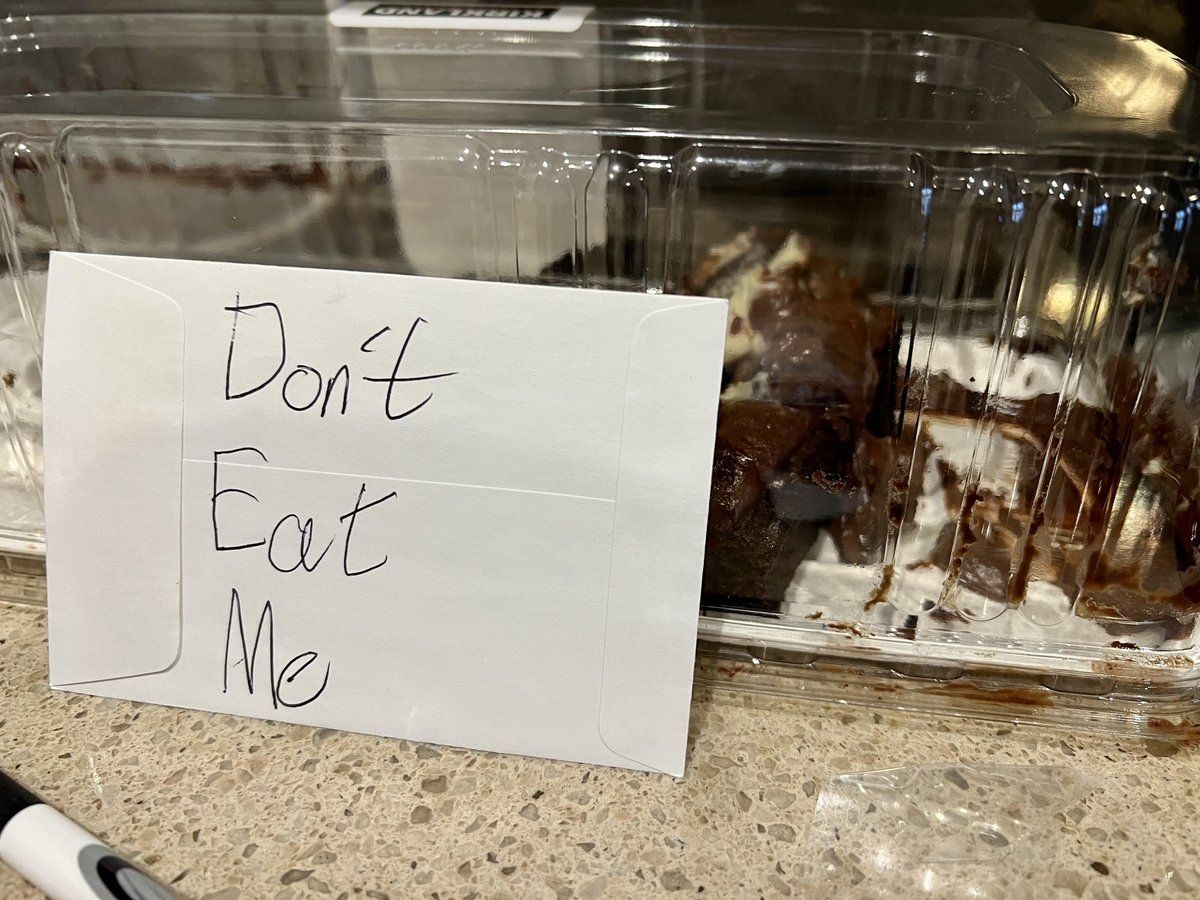 KIRKLAND
Don't
Eat
Me